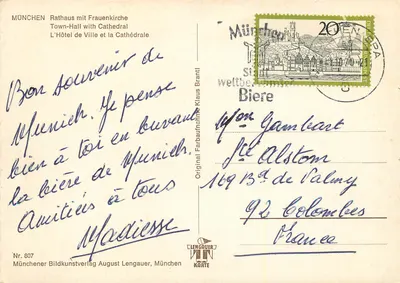 MÜNCHEN Rathaus mit Frauenkirche
Town-Hall with Cathedral
L'Hôtel de Ville et la Cathédrale
Bon souvenir de
Munich. Je pense
bien à toi en buvant
la bière de Munich.
Amitiés à tous
Nr. 807
Münchener Bildkunstverlag August Lengauer, München
Original Farbaufnahme Klaus Brantl
LENGAUER
KARTE
München
Biere
20
Mon Gambart
Sté Alstom
169 Bd de Valmy
92 Colombes
France